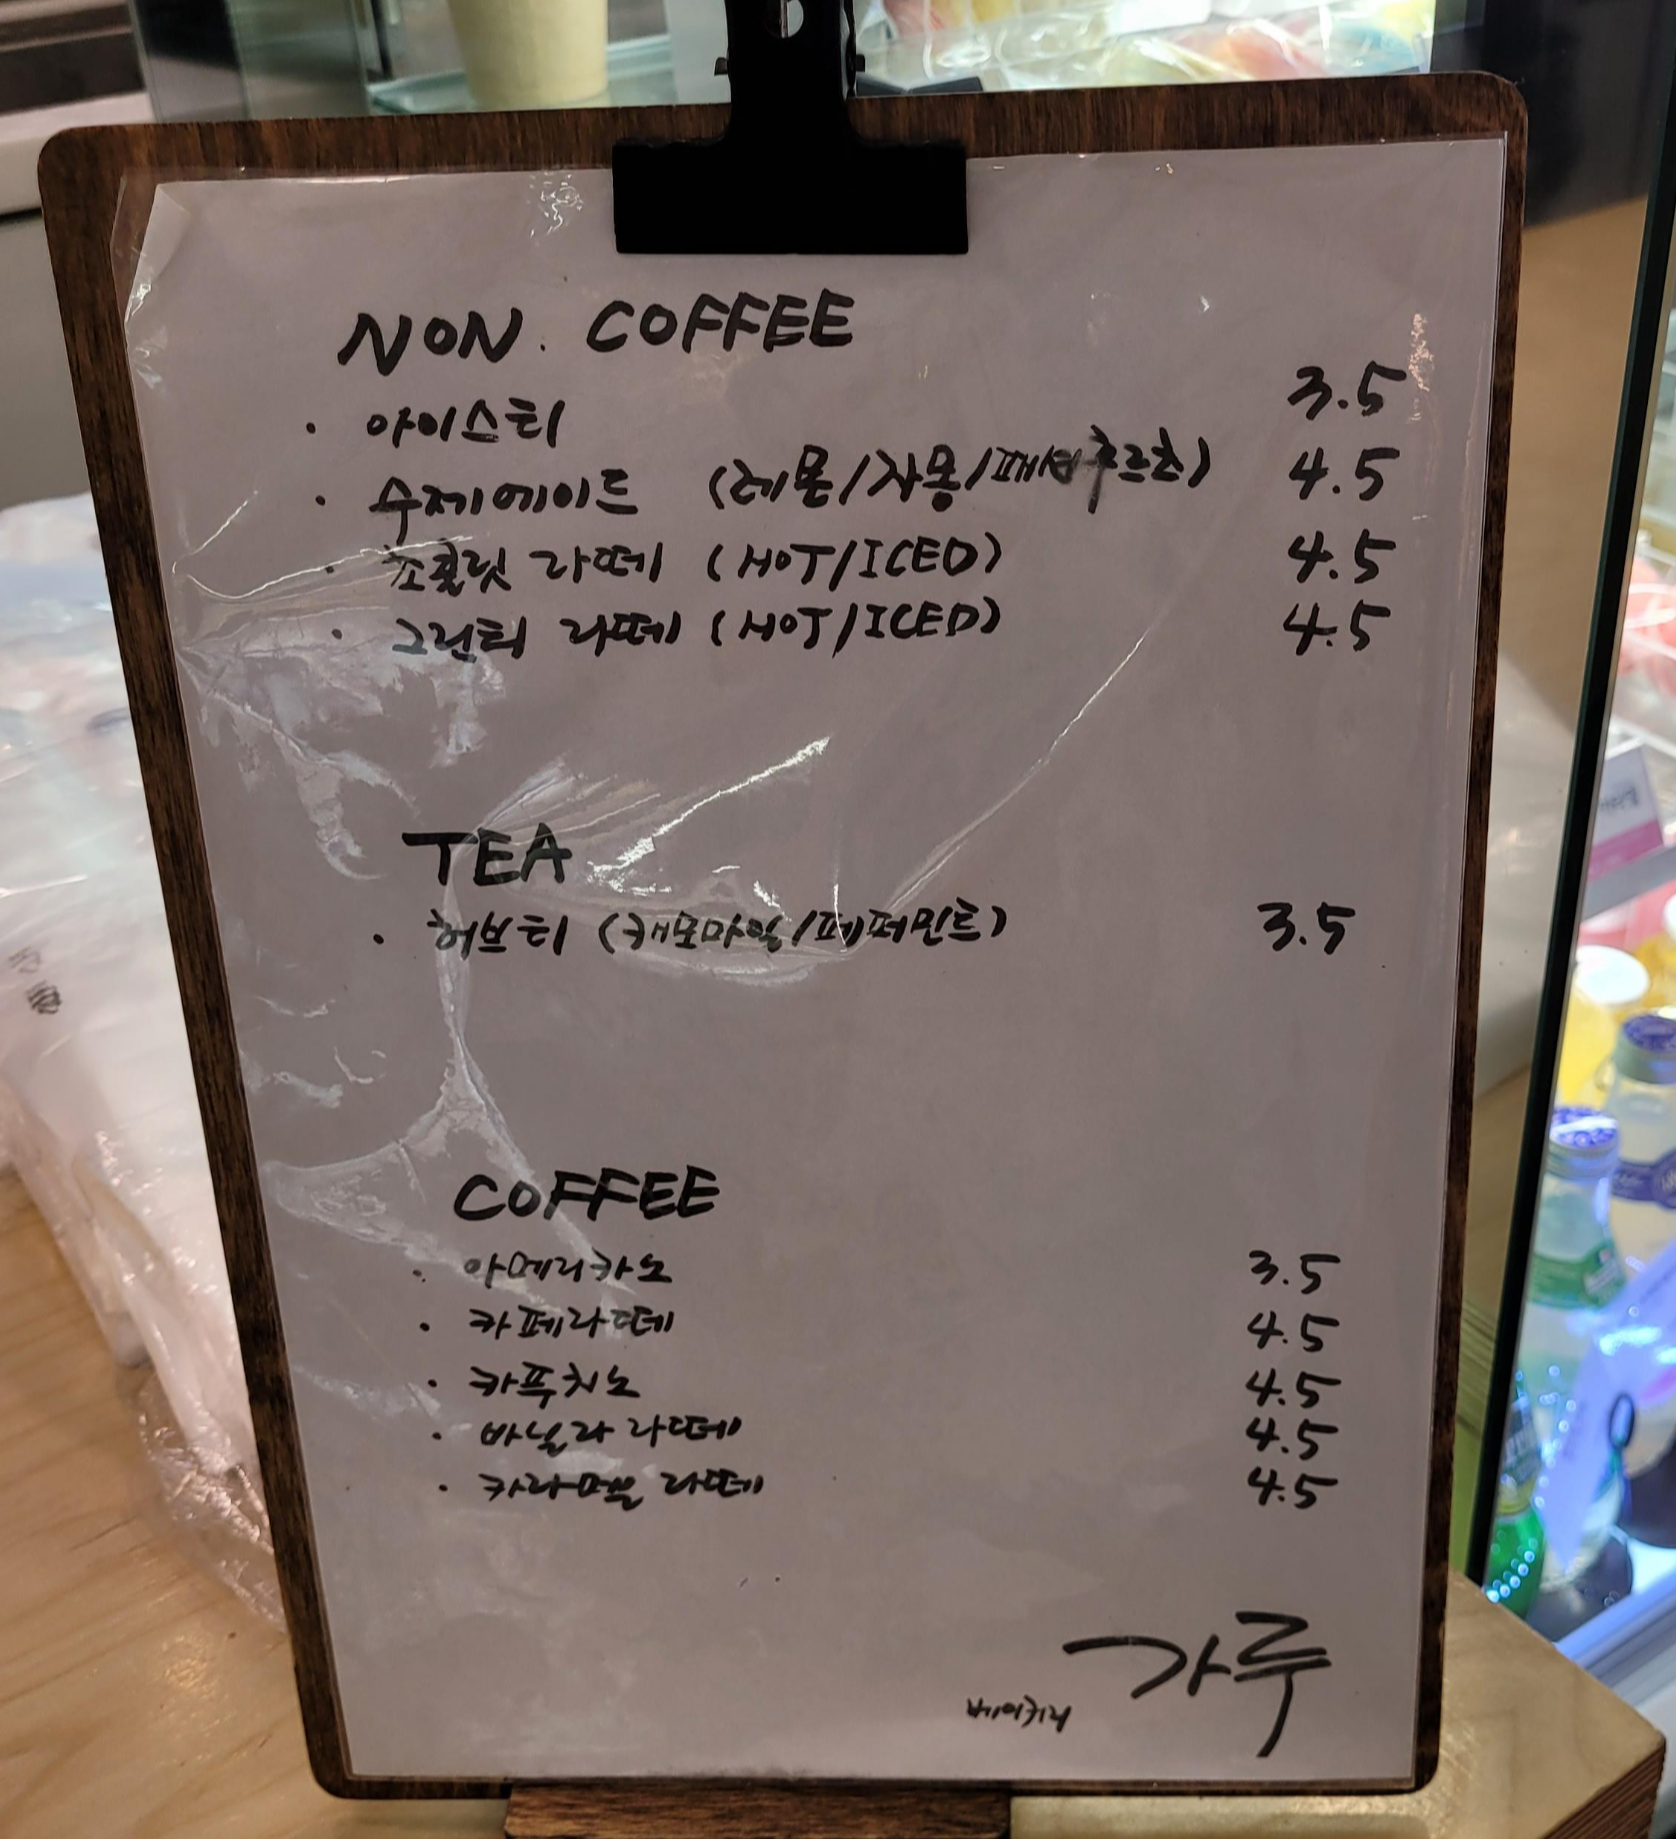 NON. COFFEE
· 아이스티 3.5
· 수제에이드 (레몬/자몽/패션후르츠) 4.5
· 초콜릿 라떼 (HOT/ICED) 4.5
· 그린티 라떼 (HOT/ICED) 4.5
TEA
· 허브티 (캐모마일/페퍼민트) 3.5
COFFEE
· 아메리카노 3.5
· 카페라떼 4.5
· 카푸치노 4.5
· 바닐라 라떼 4.5
· 카라멜 라떼 4.5
베이커리 가루